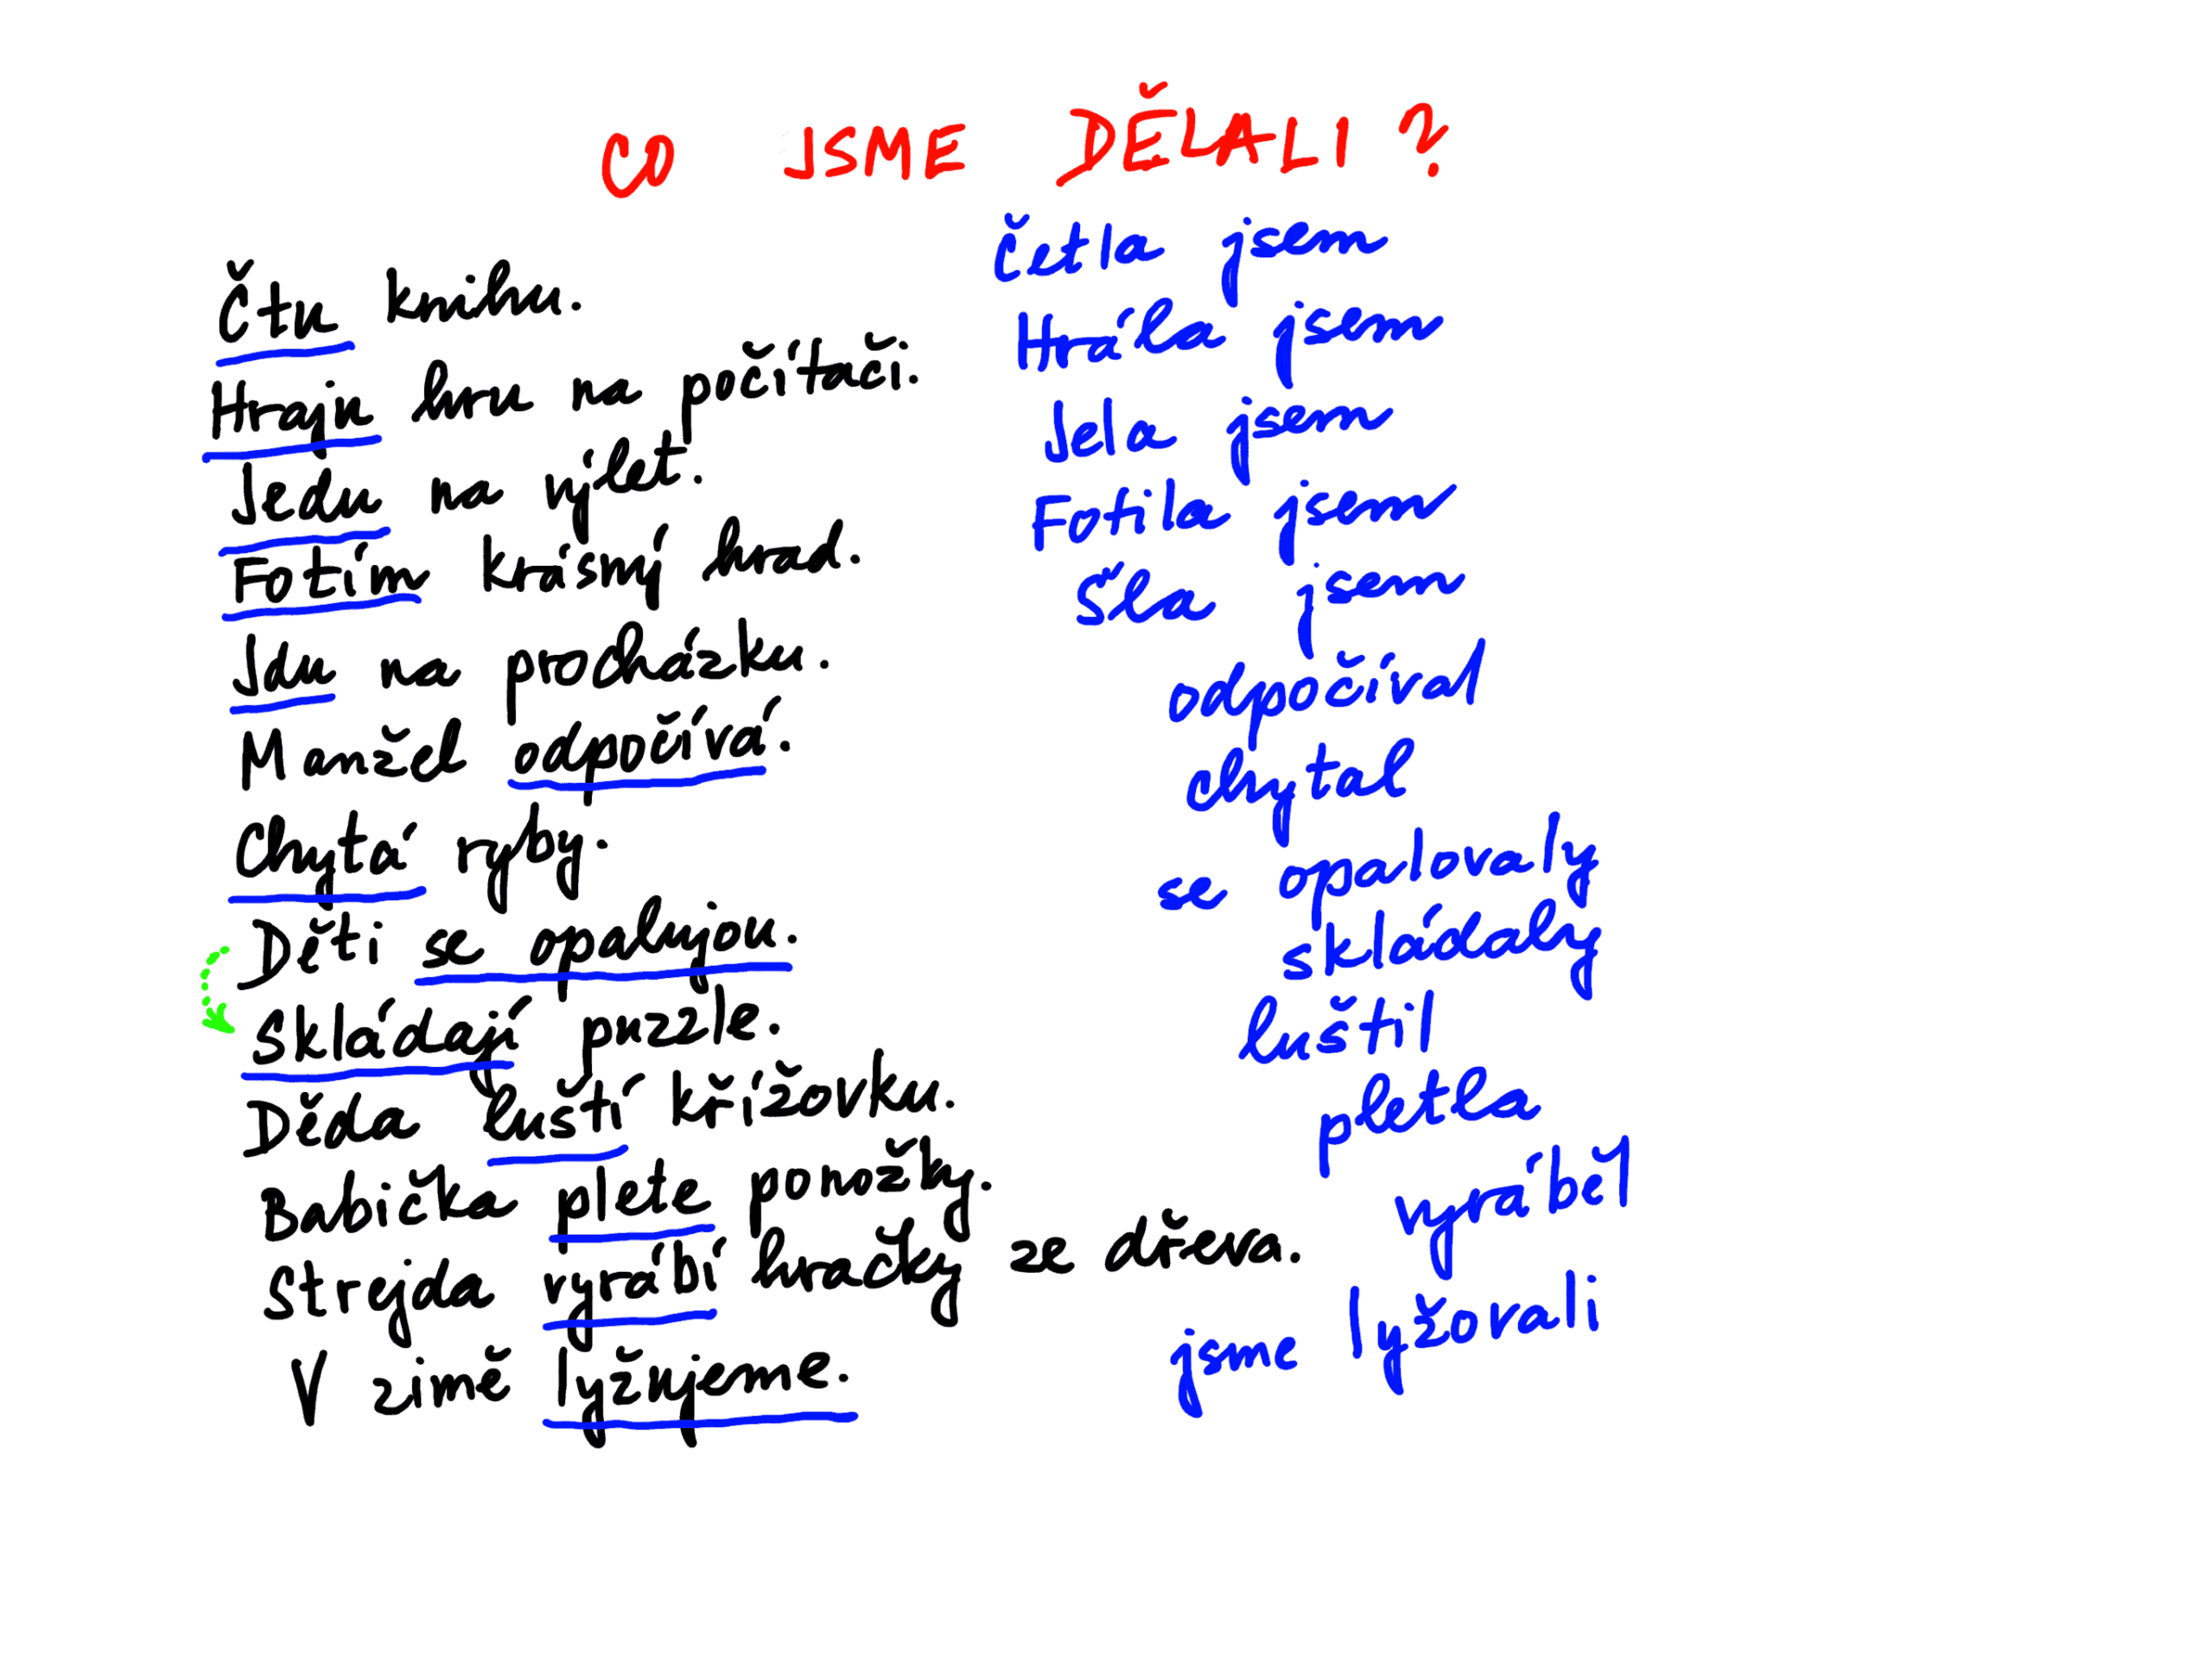 CO JSME DĚLALI?
Čtu knihu.
Hraju hru na počítači.
Jedu na výlet.
Fotím krásný hrad.
Jdu na procházku.
Manžel odpočívá.
Chytá ryby.
Děti se opalujou.
Skládají puzzle.
Děda luští křížovku.
Babička plete ponožky.
Strejda vyrábí hračky ze dřeva.
V zimě lyžujeme.
Četla jsem
Hrála jsem
Jela jsem
Fotila jsem
Šla jsem
odpočíval
chytal
se opalovaly
skládaly
luštil
pletla
vyráběl
jsme lyžovali